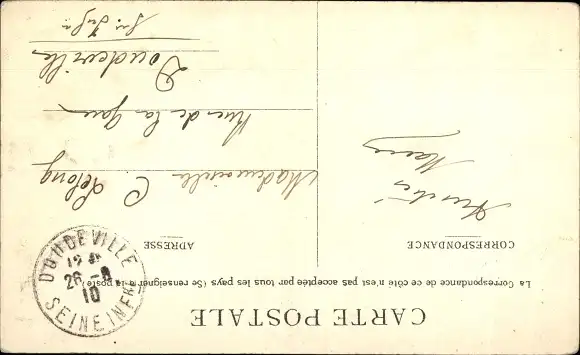 CARTE POSTALE
La Correspondance de ce côté n'est pas acceptée par tous les pays (Se renseigner à la poste)
CORRESPONDANCE
ADRESSE
Mademoiselle C. Lelong
Rue de la Gare
Doudeville
Sne Infre
DOUDEVILLE
26 -8
10
SEINE INFRE